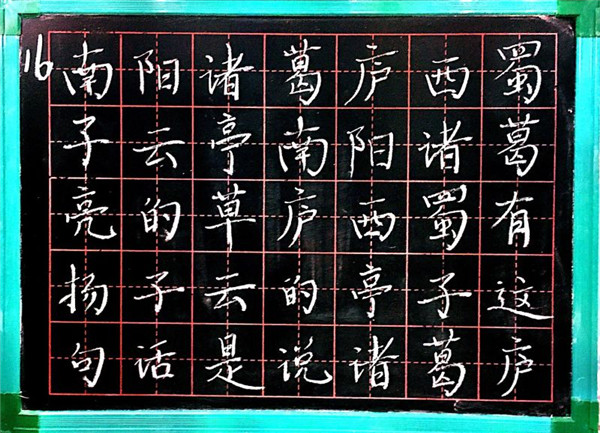 16
南阳诸葛庐西蜀
子云亭南阳诸葛
亮的草庐西蜀有
扬子云的亭子这
句话是说诸葛庐